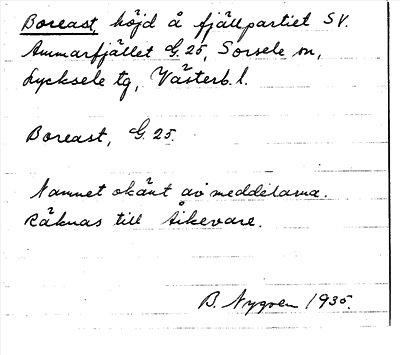 Boreast, höjd å fjällpartiet SV.
Ammarfjället G. 25, Sorsele sn,
Lycksele tg, Västerb. l.
Boreast, G. 25.
Namnet okänt av meddelarna.
Räknas till Åikevare.
B. Nygren 1935.